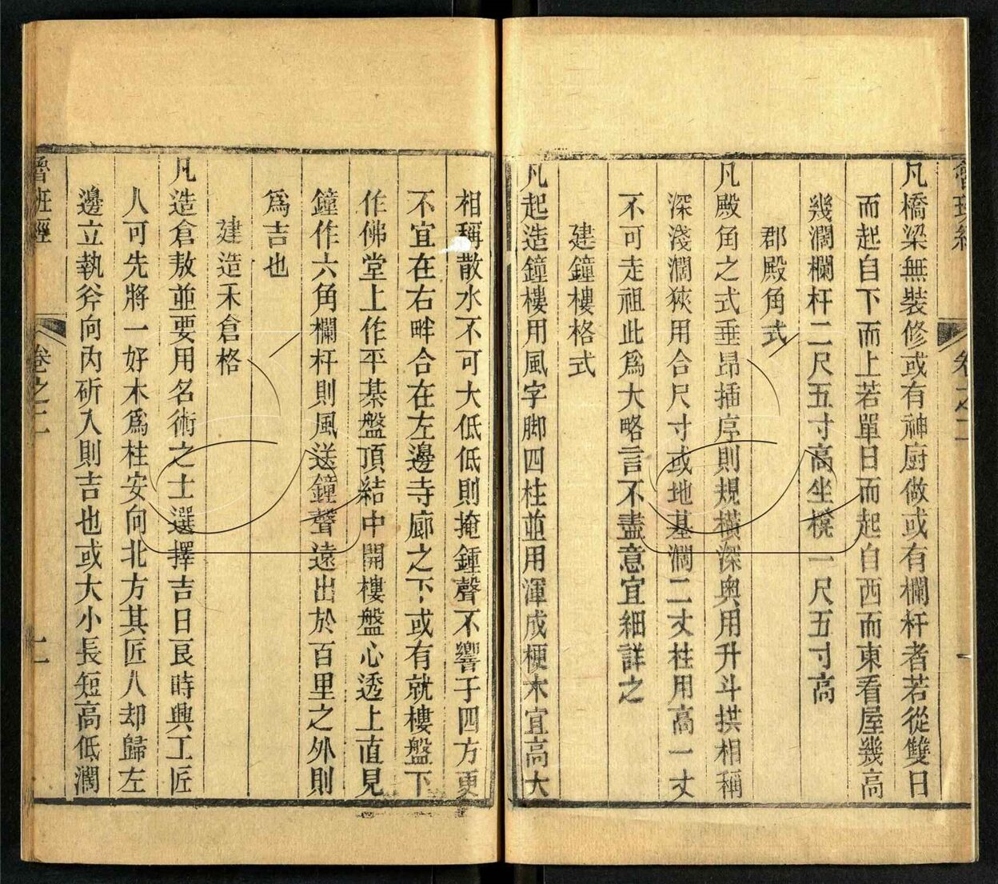 魯班經
卷之二
一
凡橋梁無裝修或有神厨做或有欄杆者若從雙日
而起自下而上若單日而起自西而東看屋幾高
幾濶欄杆二尺五寸高坐櫈一尺五寸高
郡殿角式
凡殿角之式垂昻插序則規横深奥用升斗拱相稱
深淺濶狹用合尺寸或地基濶二丈柱用高一丈
不可走祖此爲大略言不盡意宜細詳之
建鐘樓格式
凡起造鐘樓用風字脚四柱並用渾成梗木宜高大
相稱散水不可大低低則掩鍾聲不響于四方更
不宜在右畔合在左邊寺廊之下或有就樓盤下
作佛堂上作平棊盤頂結中開樓盤心透上直見
鐘作六角欄杆則風送鐘聲遠出於百里之外則
爲吉也
建造禾倉格
凡造倉敖並要用名術之士選擇吉日良時興工匠
人可先將一好木爲柱安向北方其匠人却歸左
邊立執斧向內斫入則吉也或大小長短高低濶
魯班經
卷之二
二